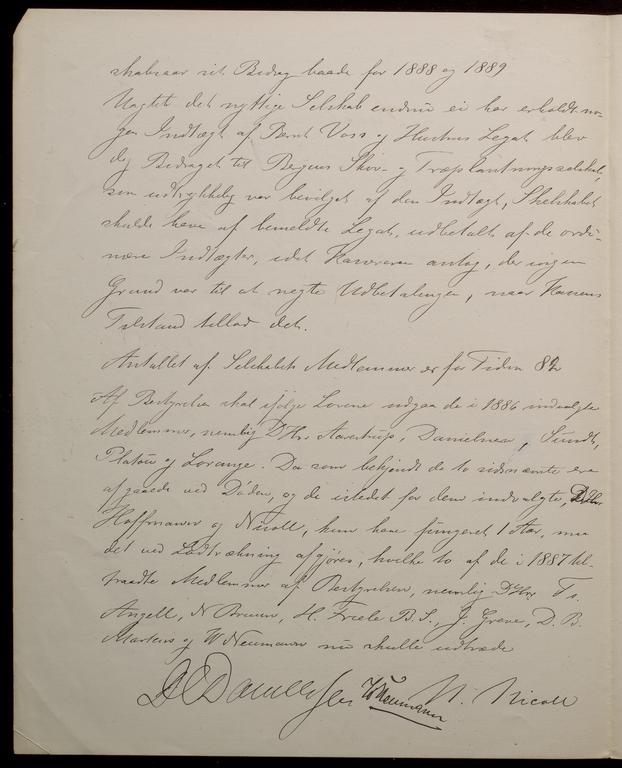 skabsaar sit Bidrag baade for 1888 og 1889
Uagtet det nyttige Selskab endnu ei har erholdt no-
gen Indtægt af Bernt Voss og Hustrus Legat blev
dog Bidraget til Bergens Skov- og Træplantningsselskab,
som udtrykkelig var bevilget af den Indtægt, Selskabet
skulde have af bemeldte Legat, udbetalt af de ordi-
nære Indtægter, idet Kasereren antog, der ingen
Grund var til at negte Udbetalingen, naar Kassens
Tilstand tillod det.
Antallet af Selskabets Medlemmer er for Tiden 82
Af Bestyrelsen skal ifølge Lovene udgaa de i 1886 indvalgte
Medlemmer, nemlig DHrr Aarestrup, Danielssen, Sundt,
Platou og Lorange. Da som bekjendt de to sidsnævnte ere
afgaaede ved Døden, og de istedet for dem indvalgte, DHrr
Hoffmann og Nicoll, kun have fungeret 1 Aar, maa
det ved Lodtrækning afgjøres, hvilke to af de i 1887 til-
traadte Medlemmer af Bestyrelsen, nemlig DHrr
Angell, N Bruun, H. Friele B. S., J. Greve, D. B.
Martens og W Neumann nu skulle udtræde
DC Danielssen W Neumann N. Nicoll